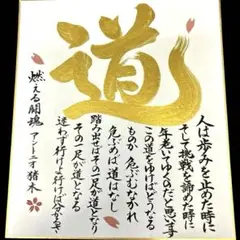 道
人は歩みを止めた時に
そして挑戦を諦めた時に
年老いてゆくのだと思います
この道をゆけばどうなる
ものか 危ぶむなかれ
危ぶめば道はなし
踏み出せばその一足が道となり
その一足が道となる
迷わず行けよ行けば分かるさ
燃える闘魂 アントニオ猪木